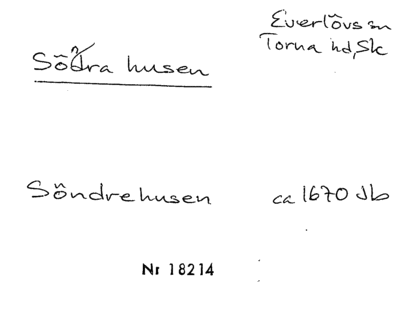 Södra husen
Everlövs sn
Torna hd, Sk
Söndrehusen ca 1670 Jb
Nr 18214